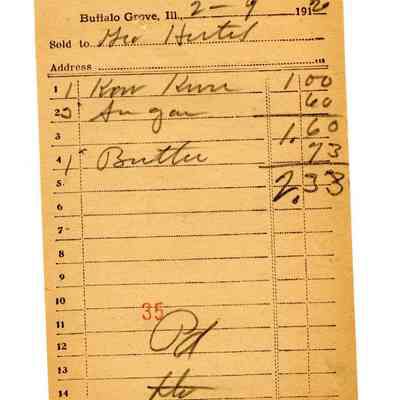 Buffalo Grove, Ill., 2-9 1920
Sold to Geo Hertel
Address
1 1 Kow Kure 1 00
2 5 Sugar 60
3 1.60
4 1 Butter 73
5 2.33
6
7
8
9
10
35
11 Pd
12
13
14